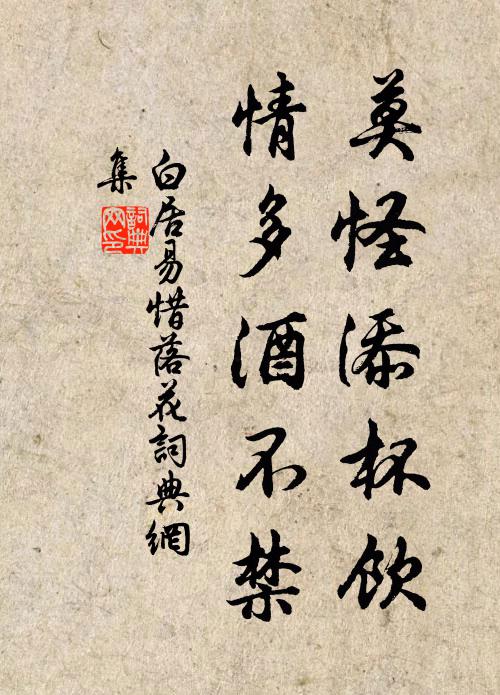 莫怪添杯飲
情多酒不禁
白居易惜落花詞典網
集
詞典
网印